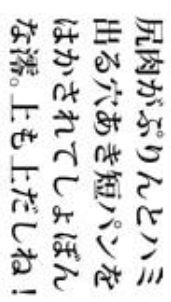 尻肉がぷりんとハミ
出る穴あき短パンを
はかされてしょぼん
な澪。上も上だしね！